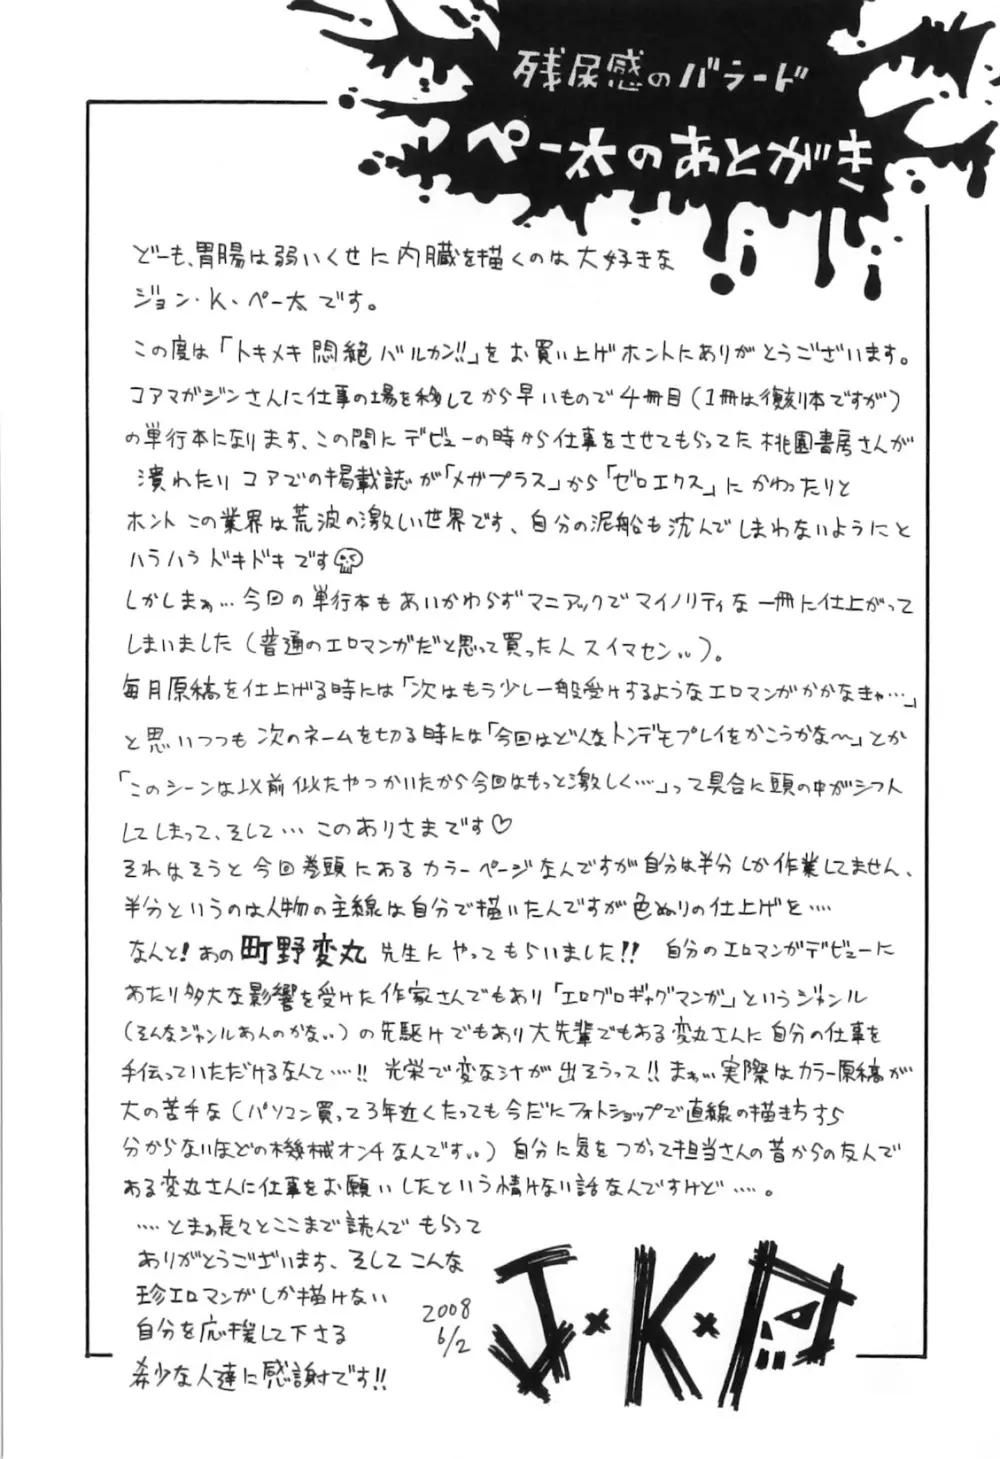 残尿感のバラード
ペー太のあとがき
どーも、胃腸は弱いくせに内臓を描くのは大好きな
ジョン・K・ペー太です。
この度は「トキメキ悶絶バルカン!!」をお買い上げホントにありがとうございます。
コアマガジンさんに仕事の場を移してから早いもので4冊目(1冊は復刻本ですが)
の単行本になります、この間にデビューの時から仕事をさせてもらってた桃園書房さんが
潰れたりコアでの掲載誌が「メガプラス」から「ゼロエクス」にかわったりと
ホントこの業界は荒波の激しい世界です、自分の泥船も沈んでしまわないようにと
ハラハラドキドキです
しかしまぁ…今回の単行本もあいかわらずマニアックでマイノリティな一冊に仕上がって
しまいました(普通のエロマンガだと思って買った人スイマセン‥)。
毎月原稿を仕上げる時には「次はもう少し一般受けするようなエロマンガかかなきゃ…」
と思いつつも次のネームを切る時には「今回はどんなトンデモプレイをかこうかな〜」とか
「このシーンは以前似たやつかいたから今回はもっと激しく…」って具合に頭の中がシフト
してしまって、そして…このありさまです♡
それはそうと今回巻頭にあるカラーページなんですが自分は半分しか作業してません、
半分というのは人物の主線は自分で描いたんですが色ぬりの仕上げを‥‥
なんと!あの町野変丸先生にやってもらいました!! 自分のエロマンガデビューに
あたり多大な影響を受けた作家さんでもあり「エログロギャグマンガ」というジャンル
(そんなジャンルあんのかな‥)の先駆けでもあり大先輩でもある変丸さんに自分の仕事を
手伝っていただけるなんて‥‥!! 光栄で変な汁が出そうっス!!まぁ…実際はカラー原稿が
大の苦手な(パソコン買って3年近くたっても今だにフォトショップで直線の描き方すら
分からないほどの機械オンチなんです‥)自分に気をつかって担当さんの昔からの友人で
ある変丸さんに仕事をお願いしたという情けない話なんですけど‥‥。
‥‥とまぁ長々とここまで読んでもらって
ありがとうございます、そしてこんな
珍エロマンガしか描けない
自分を応援して下さる
希少な人達に感謝です!!
2008
6/2
J・K・P